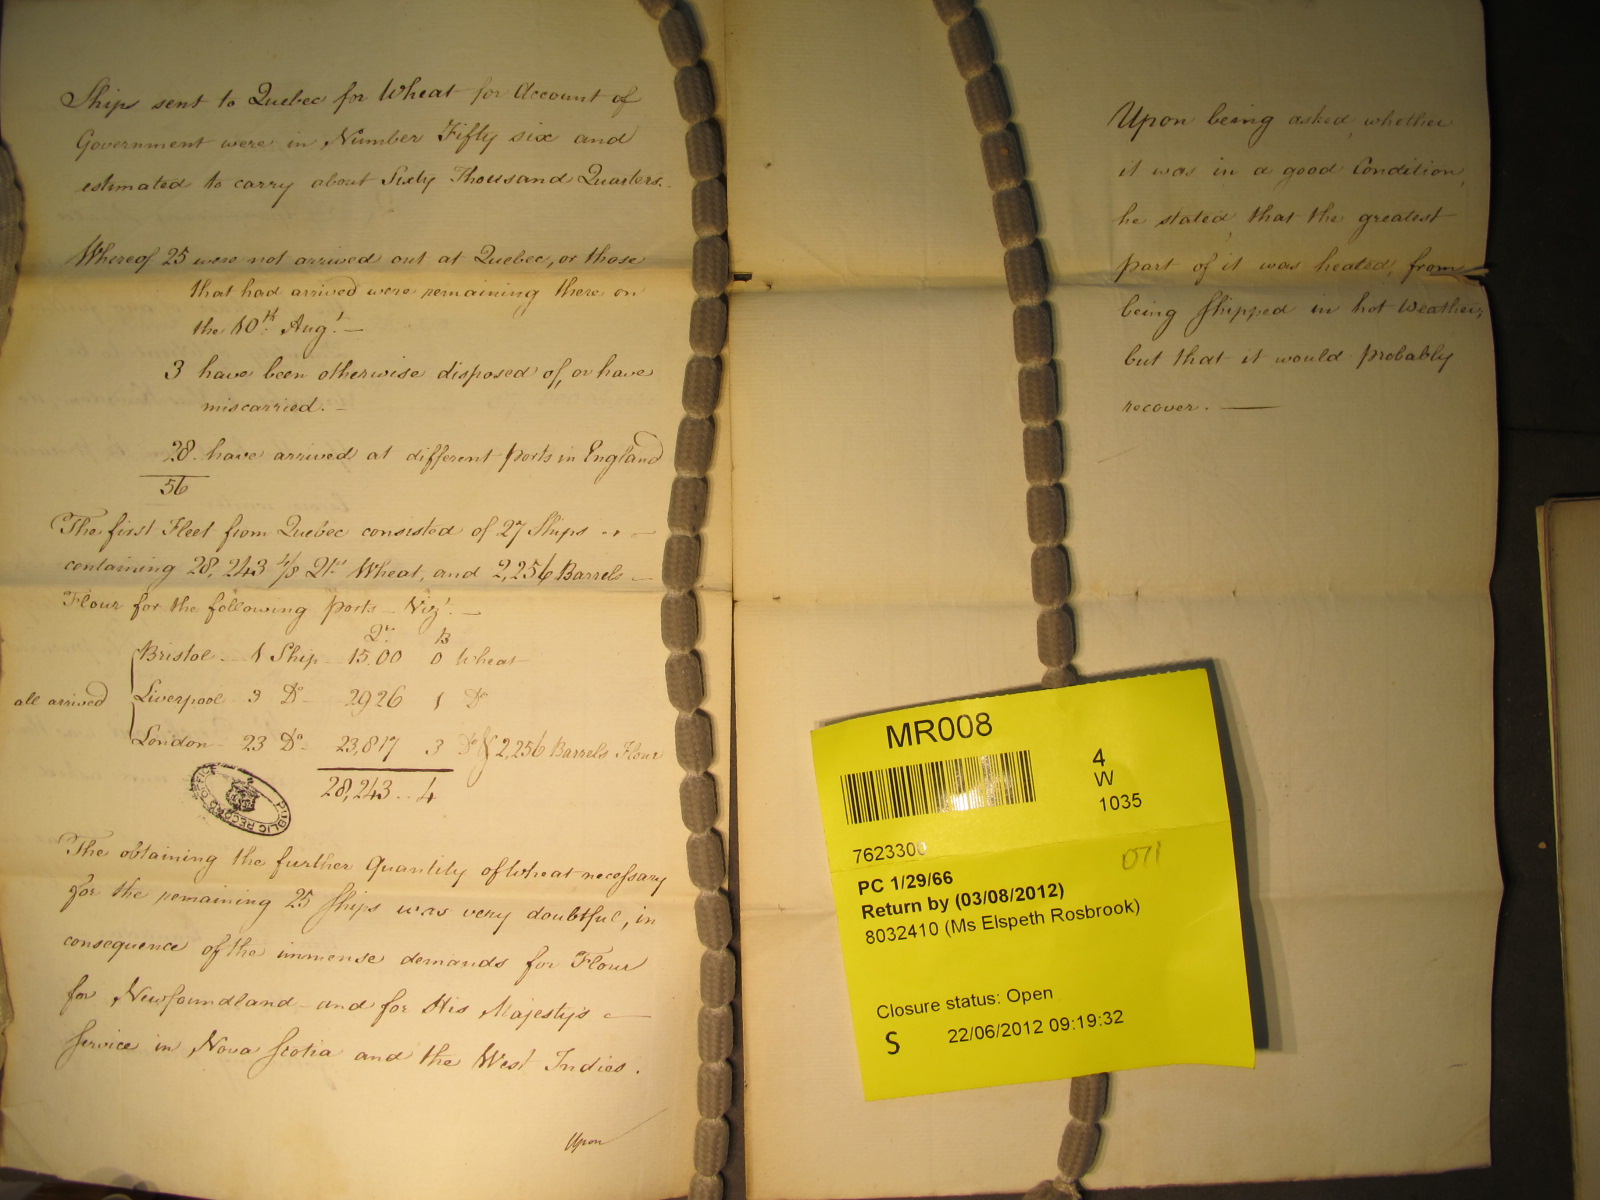 Ships sent to Quebec for Wheat for Account of
Government were in Number Fifty six and
estimated to carry about Sixty Thousand Quarters.
Whereof 25 were not arrived out at Quebec, or those
that had arrived were remaining there on
the 10th Augt. —
3 have been otherwise disposed of, or have
miscarried. —
28 have arrived at different ports in England
56
The first Fleet from Quebec consisted of 27 Ships
containing 28,243 4/8 Qrs Wheat, and 2,256 Barrels —
Flour for the following ports — Vizt. —
Qr. B
Bristol — 1 Ship — 15.00 0 Wheat
all arrived Liverpool 3 Do — 2926 1 Do
London — 23 Do — 23,817 3 Do & 2,256 Barrels Flour
28,243 .. 4
PUBLIC RECORD OFFICE
The obtaining the further Quantity of Wheat necessary
for the remaining 25 Ships was very doubtful, in
consequence of the immense demands for Flour
for Newfoundland — and for His Majesty's —
Service in Nova Scotia and the West Indies.
Upon
Upon being asked, whether
it was in a good Condition,
he stated, that the greatest
part of it was heated, from
being Shipped in hot Weather,
but that it would probably
recover. —
MR008
4
W
1035
7623300
071
PC 1/29/66
Return by (03/08/2012)
8032410 (Ms Elspeth Rosbrook)
Closure status: Open
S 22/06/2012 09:19:32